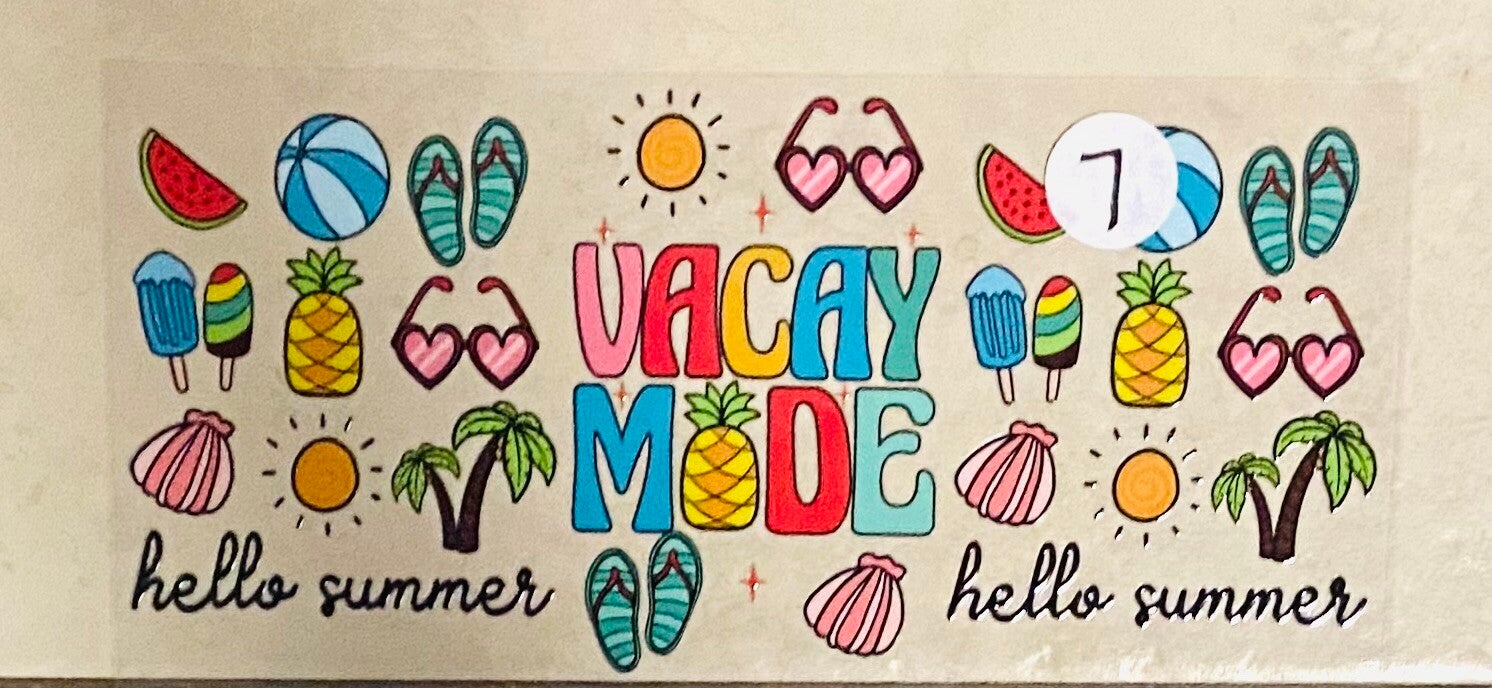 7
VACAY
MODE
hello summer
hello summer